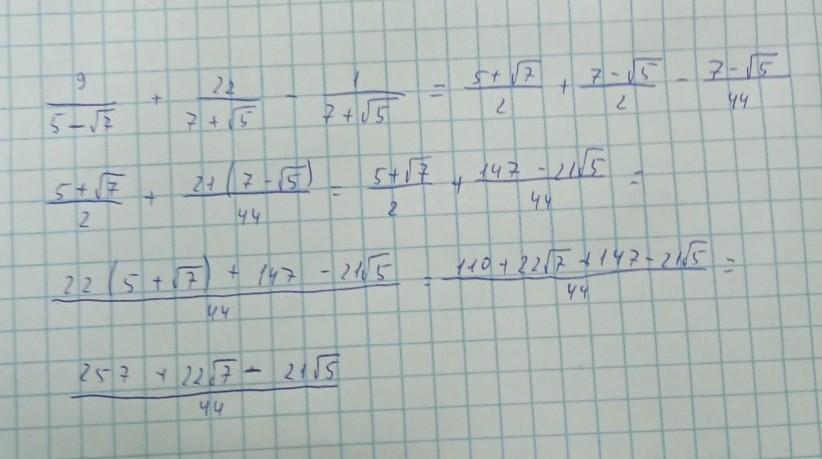 9/(5 - √7) + 22/(7 + √5) - 1/(7 + √5) = (5 + √7)/2 + (7 - √5)/2 - (7 - √5)/44
(5 + √7)/2 + 21(7 - √5)/44 = (5 + √7)/2 + (147 - 21√5)/44 =
(22(5 + √7) + 147 - 21√5)/44 = (110 + 22√7 + 147 - 21√5)/44 =
(257 + 22√7 - 21√5)/44